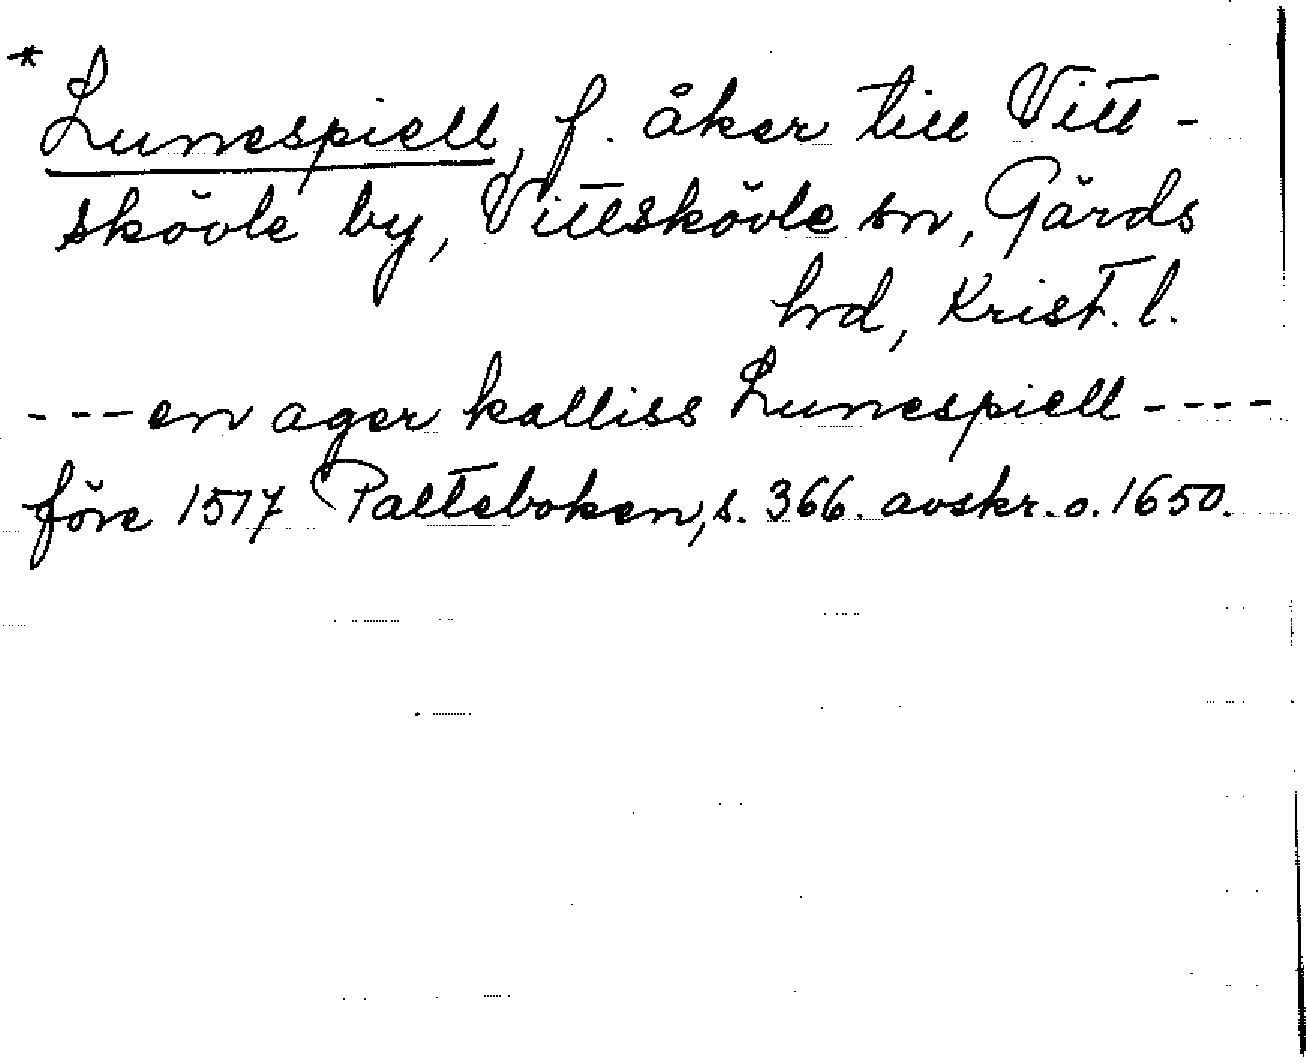 * Lunespiell, f. åker till Vitt-
skövle by, Vittskövle sn, Gärds
hrd, Krist. l.
--- en ager kalliss Lunespiell ----
före 1517 Palteboken, s. 366. avskr. o. 1650.